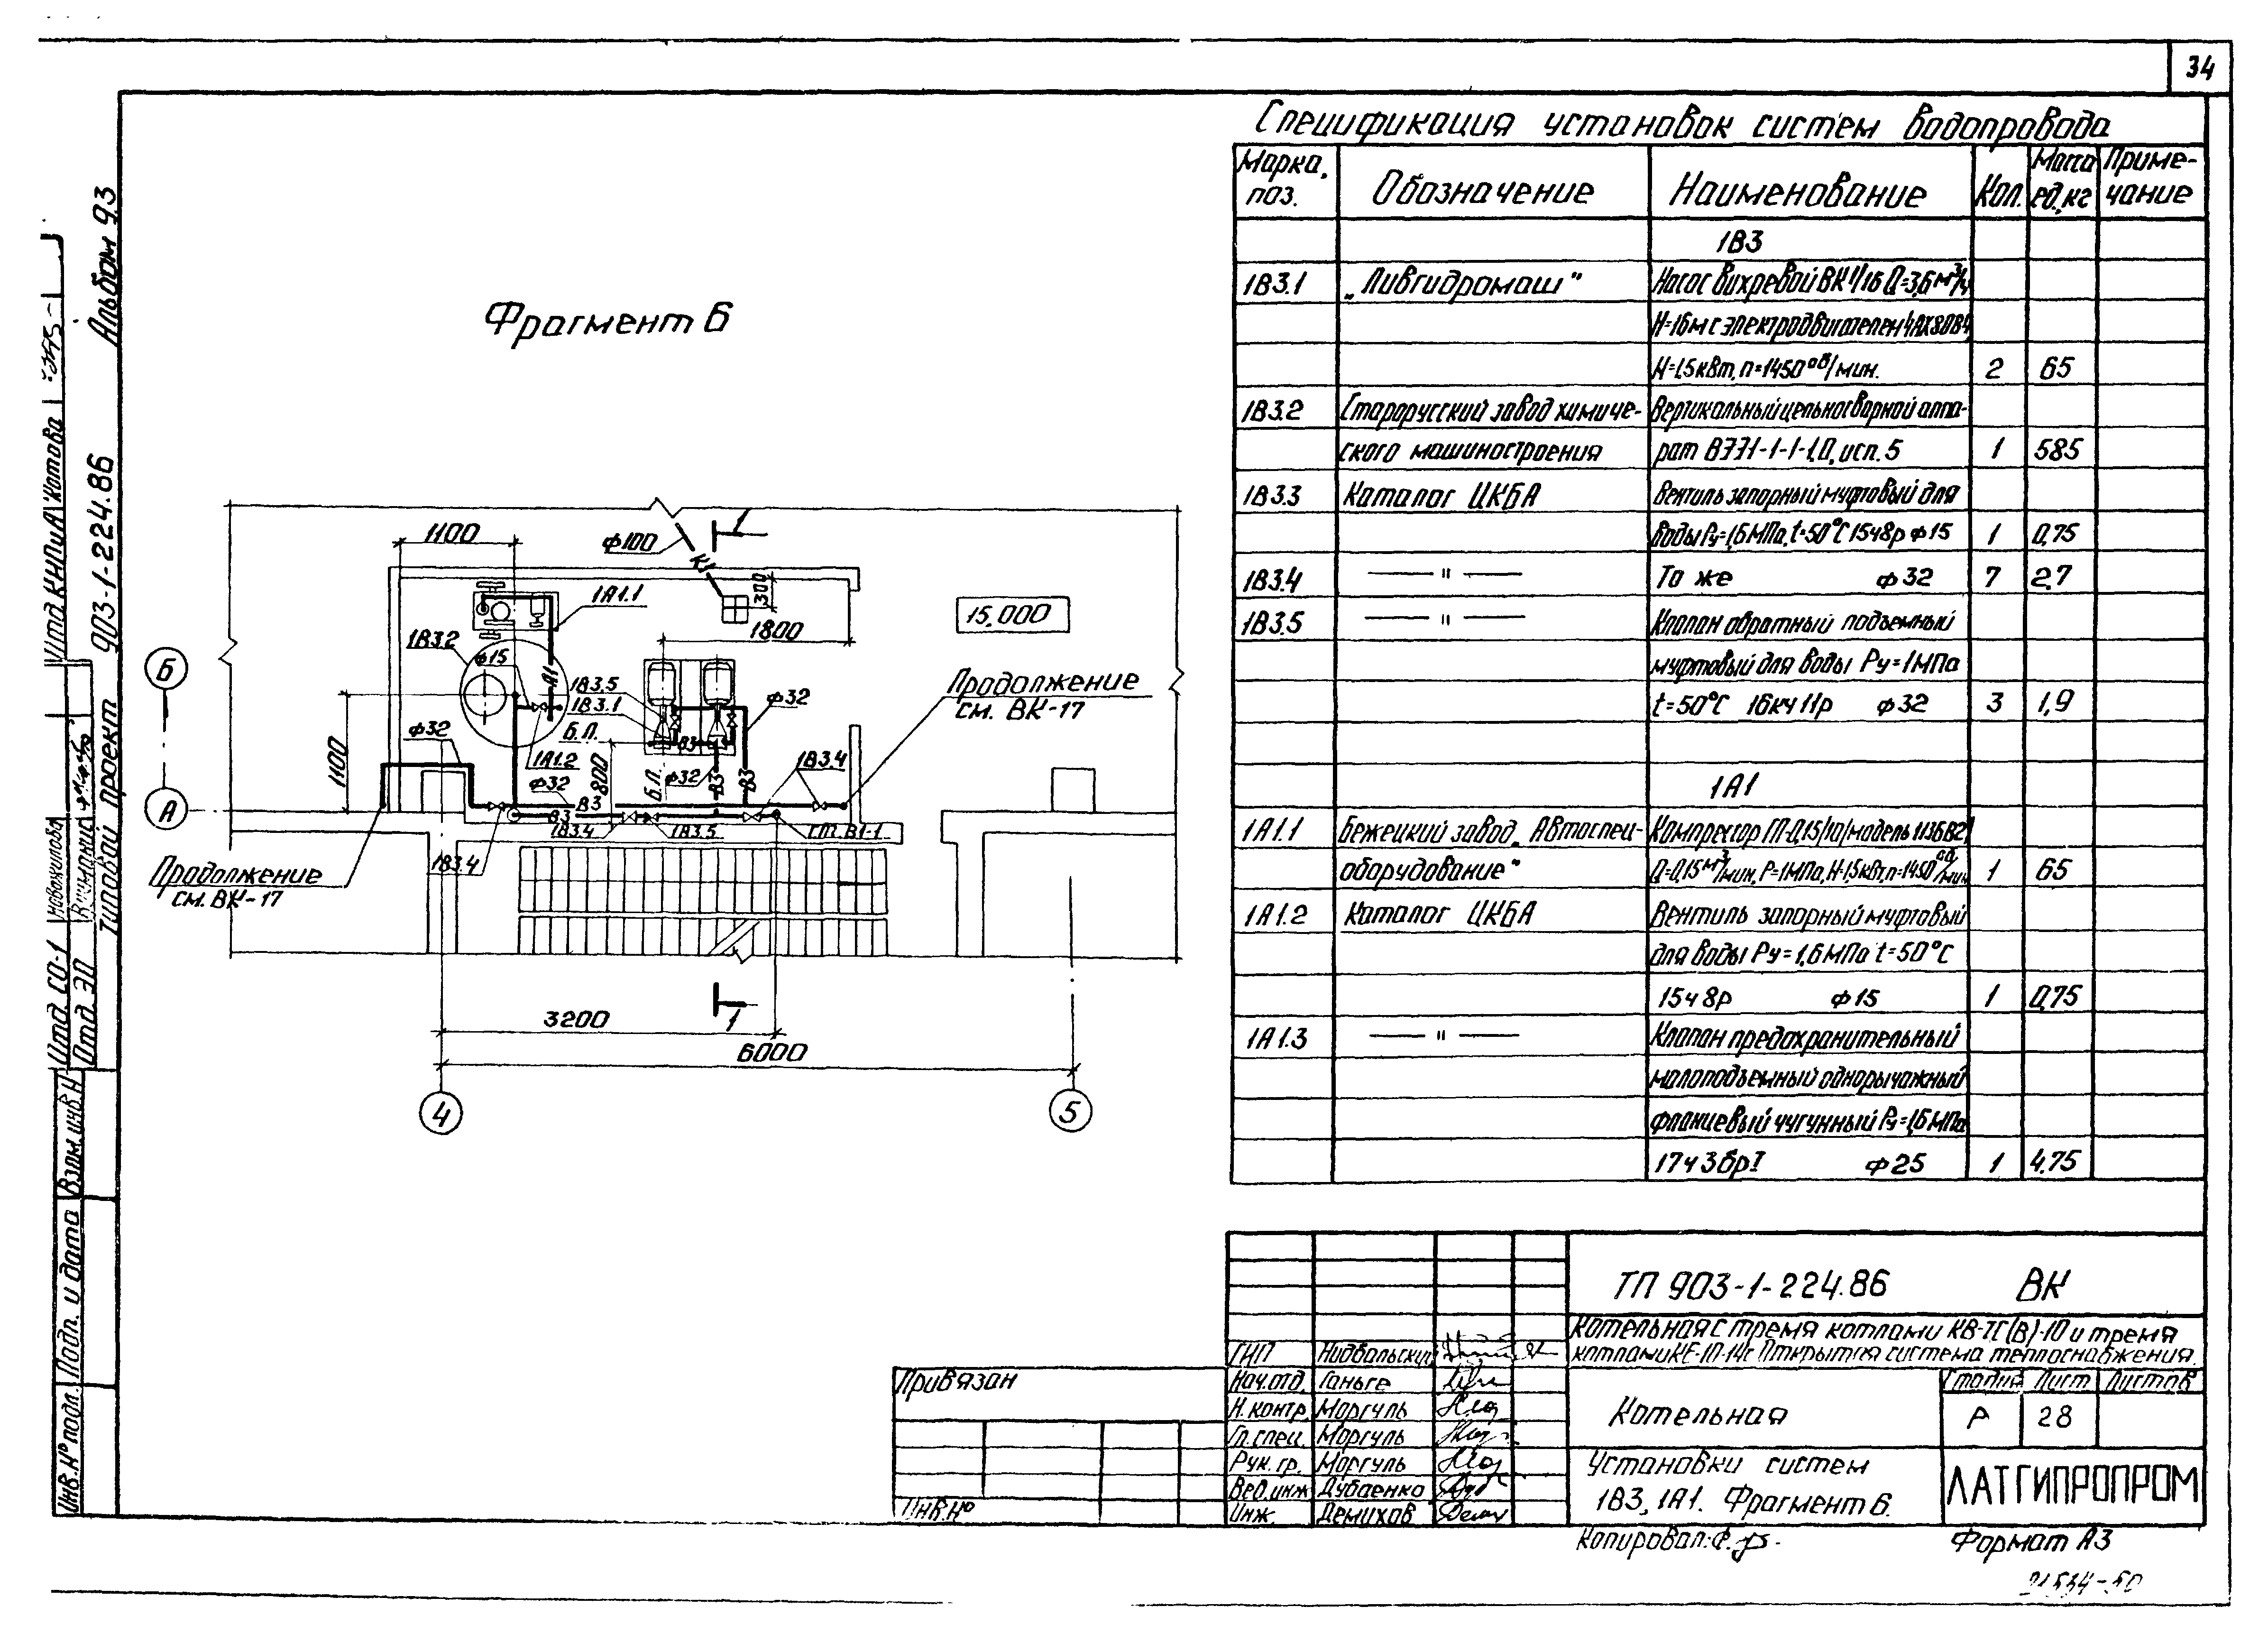 34
Альбом 9.3
Типовой проект 903-1-224.86
Отд. КИПиА Котова
Отд. СО-1 Новожилова
Отд. ЭП
Взам. инв. N
Подп. и дата
Инв. N° подл.
Фрагмент 6
1100
ф100
К1
1
300
1А1.1
1800
15.000
1В3.2
ф15
А1
1В3.5
1В3.1
ф32
Продолжение
см. ВК-17
Б
Б.П.
В3
ф32
1100
1А1.2
800
Б.П.
ф32
В3
В3
1В3.4
А
ф32
В3
В3
1В3.4
1В3.5
Ст. В1-1
1В3.4
Продолжение
см. ВК-17
1
3200
6000
4
5
Спецификация установок систем водопровода
Марка, поз. Обозначение Наименование Кол. Масса ед., кг Приме-чание
1В3
1В3.1 „Ливгидромаш" Насос вихревой ВК 1/16 Q=3,6 м³/ч
Н=16м с электродвигателем 4АХ80В4,
N=1,5кВт, n=1450 об/мин. 2 65
1В3.2 Старорусский завод химиче- Вертикальный цельносварной аппа-
ского машиностроения рат ВЭЭ1-1-1-1,0, исп. 5 1 585
1В3.3 Каталог ЦКБА Вентиль запорный муфтовый для
воды Ру=1,6 МПа, t=50°С 15ч8р ф15 1 0,75
1В3.4 — " — То же ф32 7 2,7
1В3.5 — " — Клапан обратный подъемный
муфтовый для воды Ру=1МПа
t=50°С 16кч11р ф32 3 1,9
1А1
1А1.1 Бежецкий завод „Автоспец- Компрессор ГП-0,15/10/модель 1136В2/
оборудование" Q=0,15 м³/мин, Р=1МПа, N=1,5кВт, n=1450 об/мин 1 65
1А1.2 Каталог ЦКБА Вентиль запорный муфтовый
для воды Ру=1,6 МПа t=50°С
15ч8р ф15 1 0,75
1А1.3 — " — Клапан предохранительный
малоподъемный однорычажный
фланцевый чугунный Ру=1,6 МПа
17ч3брI ф25 1 4,75
ТП 903-1-224.86 ВК
Котельная с тремя котлами КВ-ТС(В)-10 и тремя
котлами КЕ-10-14с Открытая система теплоснабжения.
ГИП Нидбальский
Нач.отд. Ганьге
Н.контр. Моргуль
Гл.спец. Моргуль
Рук. гр. Моргуль
Вед.инж Дубаенко
Инж. Демихов
Котельная
Стадия Лист Листов
Р 28
Установки систем
1В3, 1А1. Фрагмент 6.
ЛАТГИПРОПРОМ
Привязан
Инв. N°
Копировал:
Формат А3
21534-50